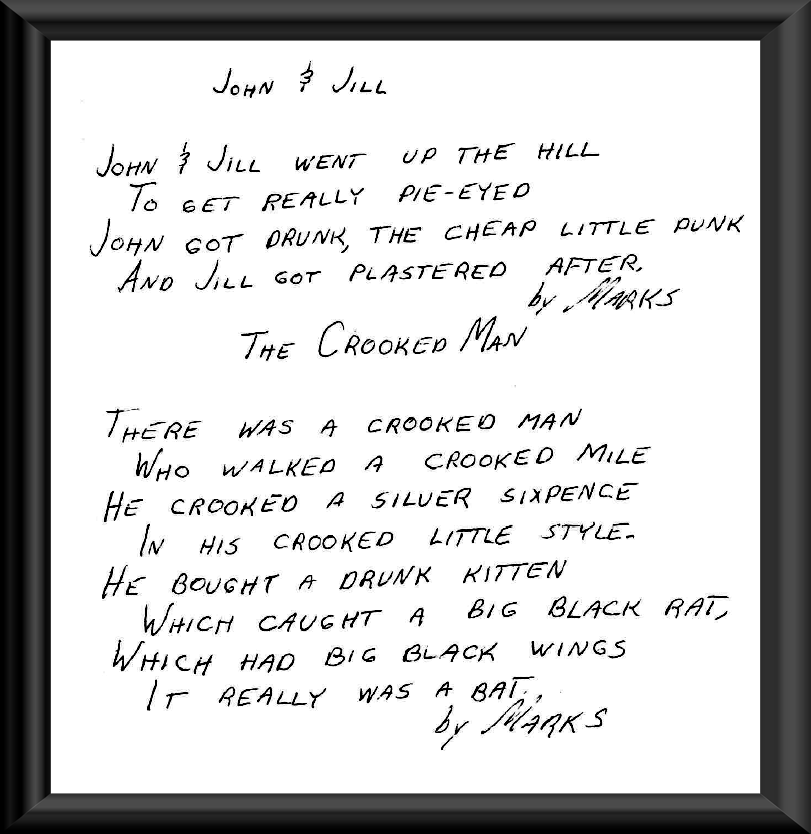 John & Jill
John & Jill went up the hill
To get really pie-eyed
John got drunk, the cheap little punk
And Jill got plastered after.
by Marks
The Crooked Man
There was a crooked man
Who walked a crooked mile
He crooked a silver sixpence
In his crooked little style.
He bought a drunk kitten
Which caught a big black rat,
Which had big black wings
It really was a bat.,
by Marks